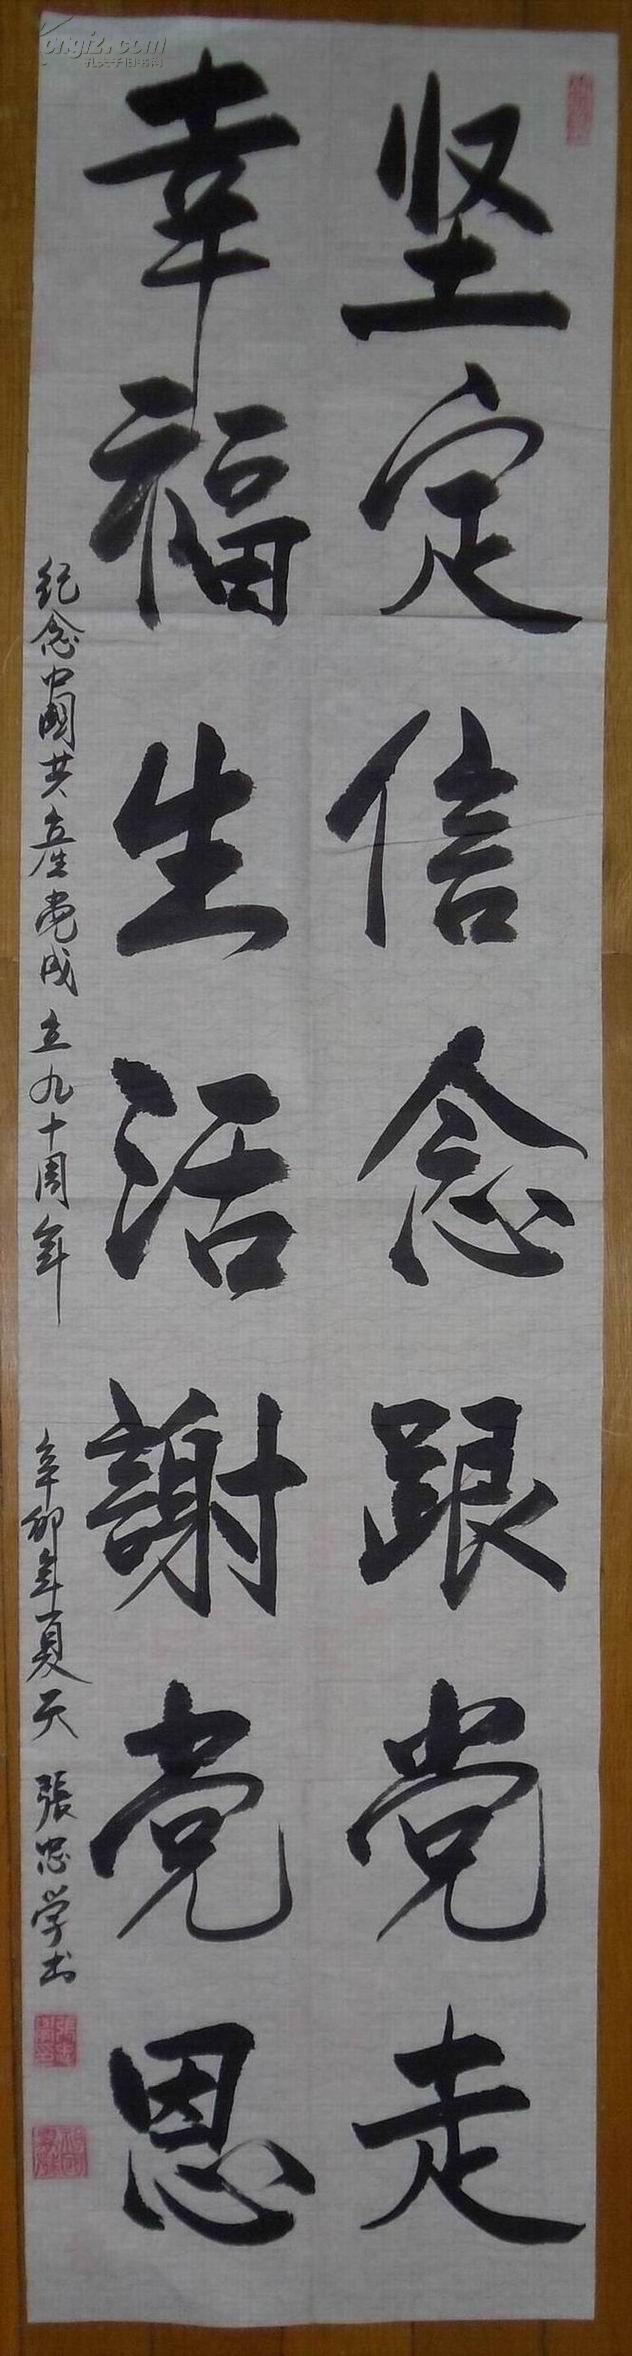 坚定信念跟党走
幸福生活謝党恩
纪念中國共産党成立九十周年
辛卯年夏天 張忠学书
kongfz.com
孔夫子旧书网